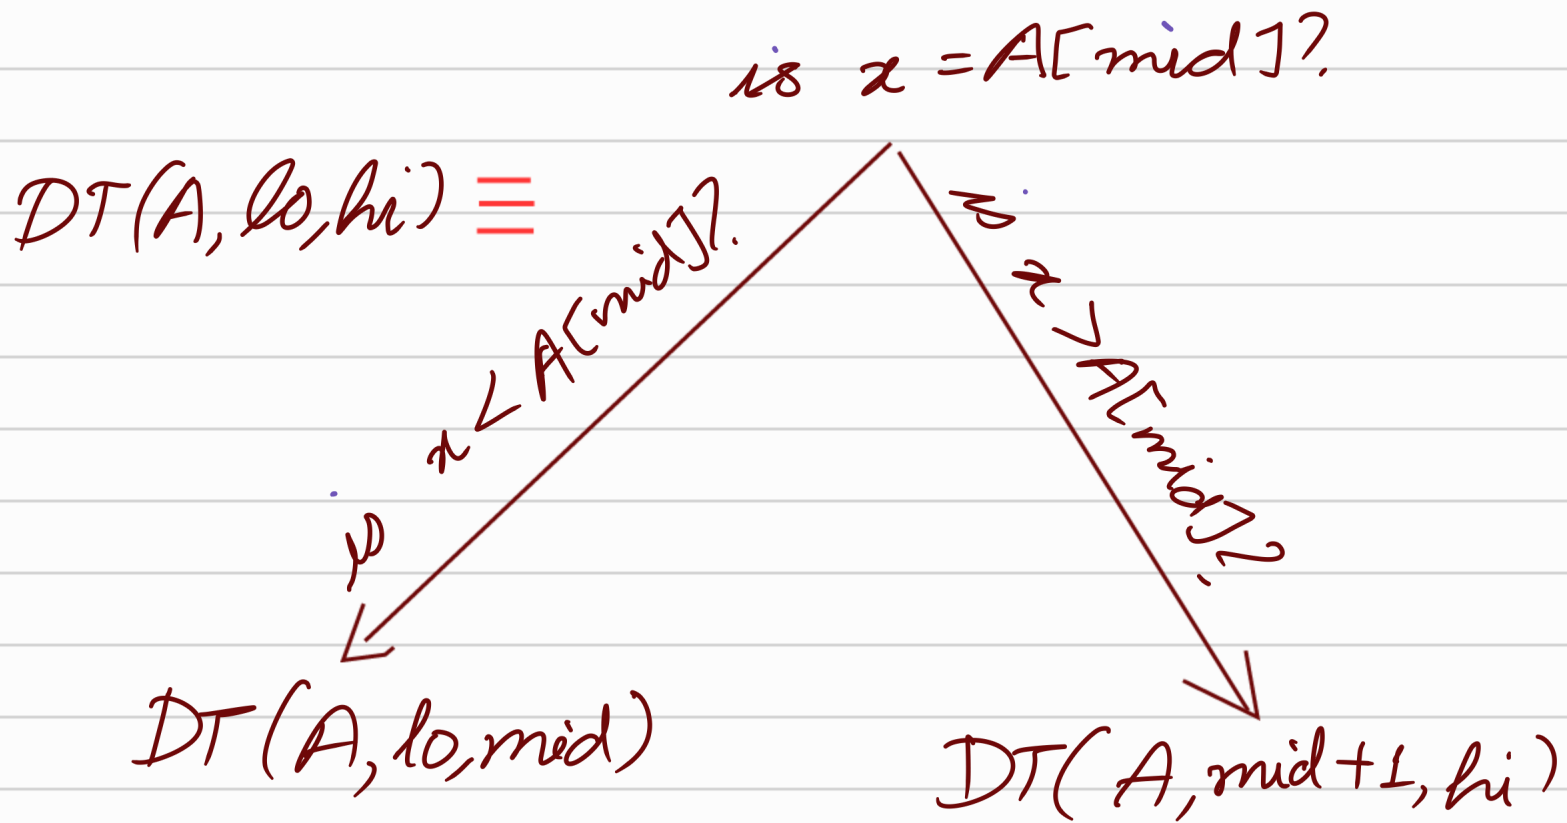 is x = A[mid]?
DT(A, lo, hi) ≡
x < A[mid]?
is x > A[mid]?
is
DT(A, lo, mid)
DT(A, mid+1, hi)